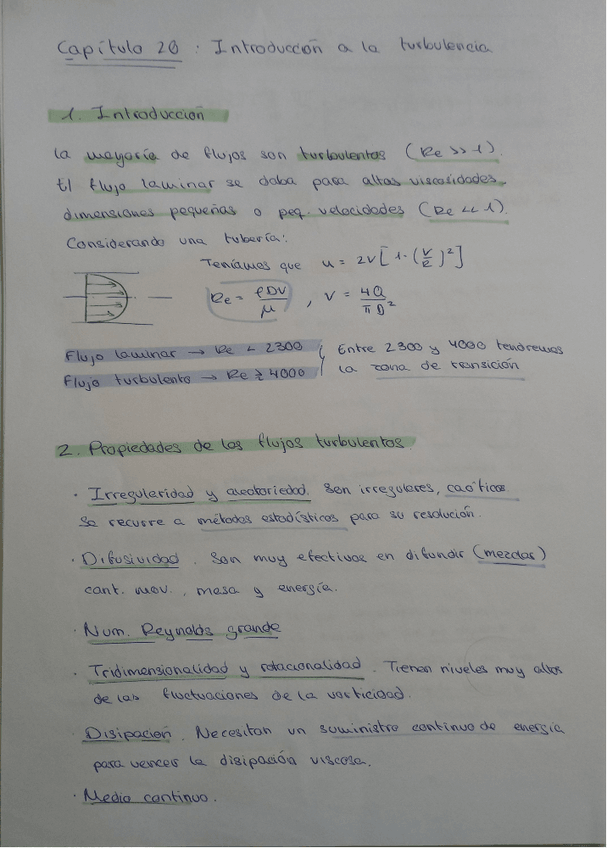 Capítulo 20 : Introducción a la turbulencia
1. Introducción
La mayoría de flujos son turbulentos (Re >> 1).
El flujo laminar se daba para altas viscosidades,
dimensiones pequeñas o peq. velocidades (Re << 1).
Considerando una tubería:
Teníamos que u = 2V[1-(r/R)²]
Re = ρDV/μ , V = 4Q/πD²
Flujo laminar → Re < 2300
Flujo turbulento → Re ≥ 4000
Entre 2300 y 4000 tendremos
la zona de transición
2. Propiedades de los flujos turbulentos.
· Irregularidad y aleatoriedad. Son irregulares, caóticos.
Se recurre a métodos estadísticos para su resolución.
· Difusividad. Son muy efectivos en difundir (mezclas)
cant. mov., masa y energía.
· Num. Reynolds grande
· Tridimensionalidad y rotacionalidad. Tienen niveles muy altos
de las fluctuaciones de la vorticidad.
· Disipación. Necesitan un suministro continuo de energía
para vencer la disipación viscosa.
· Medio continuo.